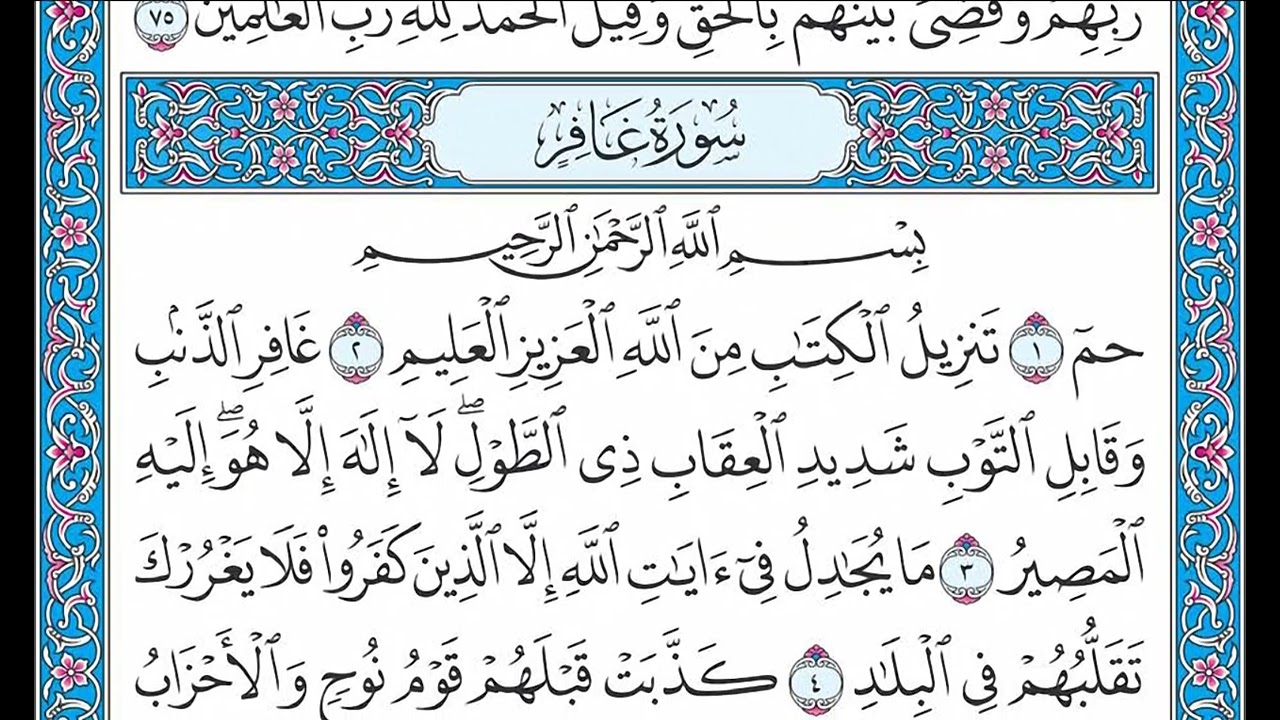 رَبِّهِمْ وَقُضِىَ بَيْنَهُم بِٱلْحَقِّ وَقِيلَ ٱلْحَمْدُ لِلَّهِ رَبِّ ٱلْعَٰلَمِينَ ٧٥
سُورَةُ غَافِرٍ
بِسْمِ ٱللَّهِ ٱلرَّحْمَٰنِ ٱلرَّحِيمِ
حمٓ ١ تَنزِيلُ ٱلْكِتَٰبِ مِنَ ٱللَّهِ ٱلْعَزِيزِ ٱلْعَلِيمِ ٢ غَافِرِ ٱلذَّنۢبِ
وَقَابِلِ ٱلتَّوْبِ شَدِيدِ ٱلْعِقَابِ ذِى ٱلطَّوْلِۖ لَآ إِلَٰهَ إِلَّا هُوَۖ إِلَيْهِ
ٱلْمَصِيرُ ٣ مَا يُجَٰدِلُ فِىٓ ءَايَٰتِ ٱللَّهِ إِلَّا ٱلَّذِينَ كَفَرُوا۟ فَلَا يَغْرُرْكَ
تَقَلُّبُهُمْ فِى ٱلْبِلَٰدِ ٤ كَذَّبَتْ قَبْلَهُمْ قَوْمُ نُوحٍ وَٱلْأَحْزَابُ